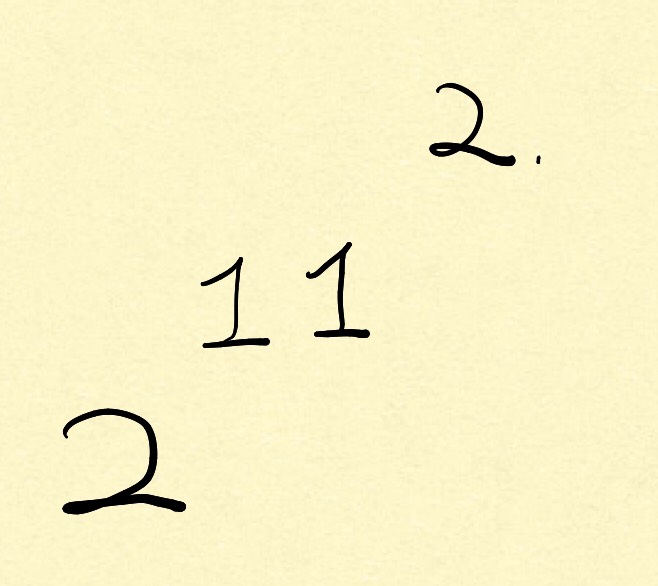 2.
1 1
2